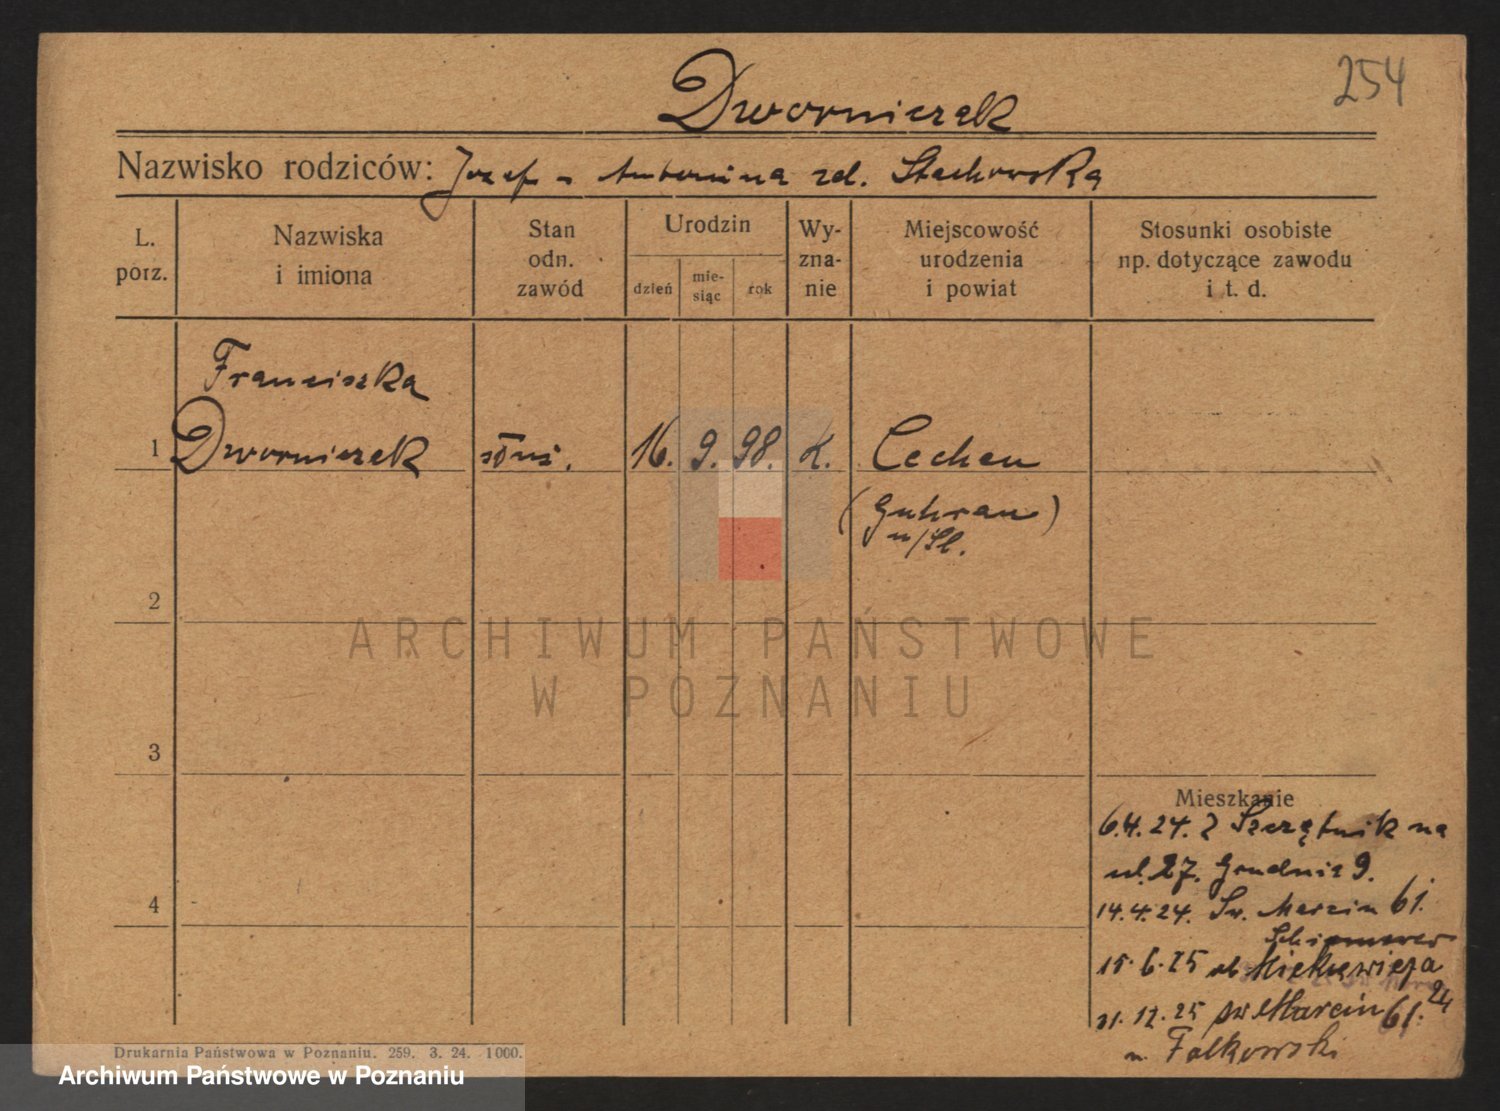 254
Dworniczak
Nazwisko rodziców: Jozef - Antonina zd. Stachowska
L. porz.
Nazwiska i imiona
Stan odn. zawód
Urodzin
dzień
mie-siąc
rok
Wy-zna-nie
Miejscowość urodzenia i powiat
Stosunki osobiste np. dotyczące zawodu i t. d.
Franciszka
1 Dworniczak służ. 16. 9. 98. k. Cechen
(Guhrau)
n/Sl.
2
ARCHIWUM PAŃSTWOWE
W POZNANIU
3
Mieszkanie
6.4.24. Z Szczątnik na
ul. 27. Grudnia 9.
4
14.4.24. Św. Marcin 61.
15.6.25 Mickiewicza 24
31.12.25 św Marcin 61.
u. Falkowski
Drukarnia Państwowa w Poznaniu. 259. 3. 24. 1000.
Archiwum Państwowe w Poznaniu